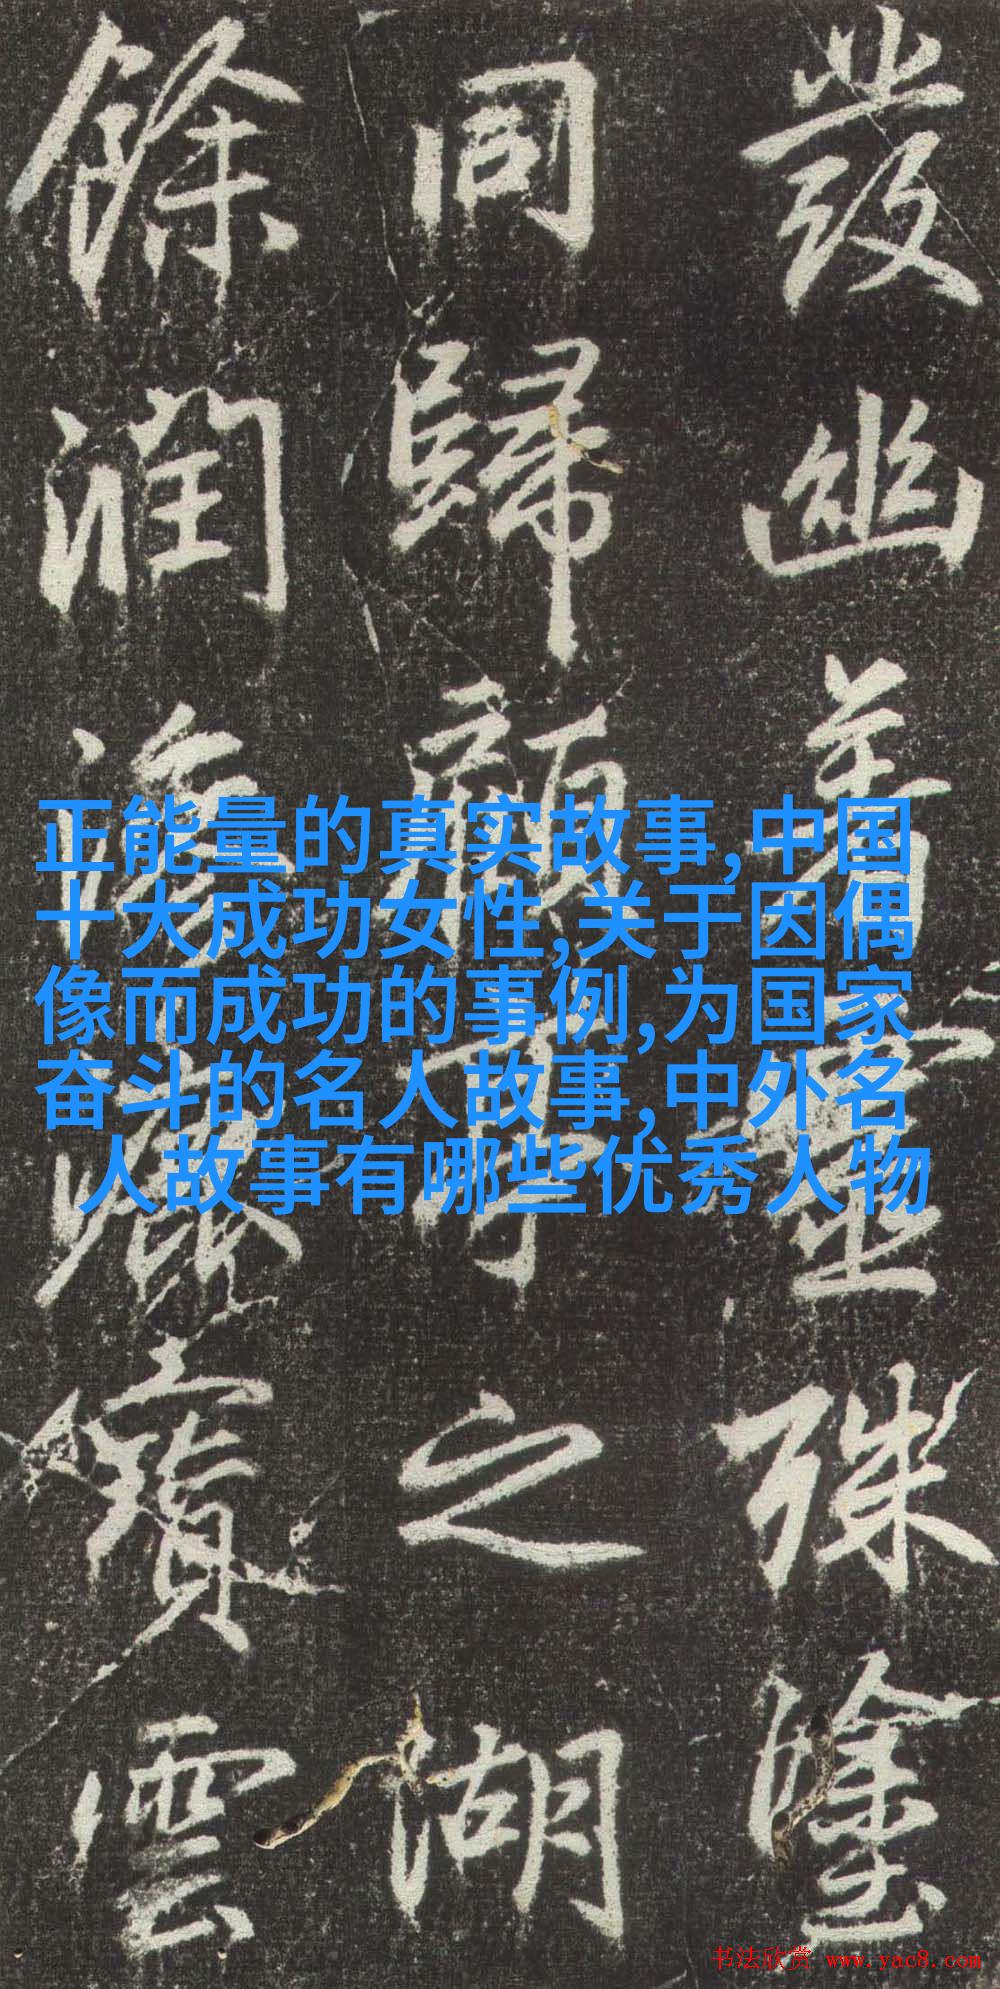 發幽著靈殊
同歸之湖
餘潤雲
正能量的真实故事,中国
十大成功女性,关于因偶
像而成功的事例,为国家
奋斗的名人故事,中外名
人故事有哪些优秀人物
书法欣赏 www.yac8.com